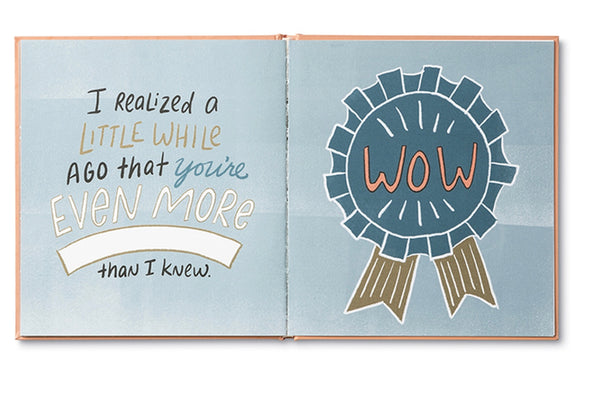 I REALIZED A
LITTLE WHILE
AGO that you're
EVEN MORE
than I knew.
WOW